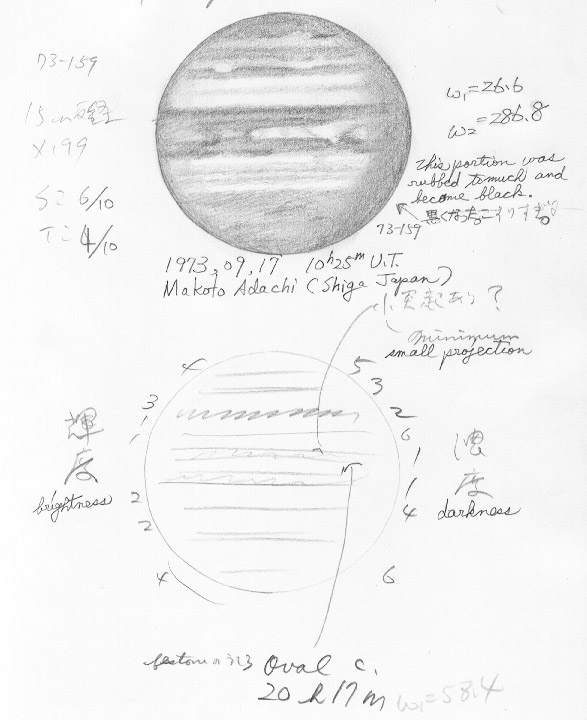 73-159
15cm
×199
S= 6/10
T= 4/10
ω₁=26.6
ω₂=286.8
This portion was
rubbed tomuch and
become black.
73-159
1973,09,17 10h25m U.T.
Makoto Adachi (Shiga Japan)
小突起あり?
minimum
small projection
4
3
1
2
2
4
5
3
2
6
1
1
4
6
輝
度
brightness
濃
度
darkness
Oval C.
20h17m
ω₁=58.4